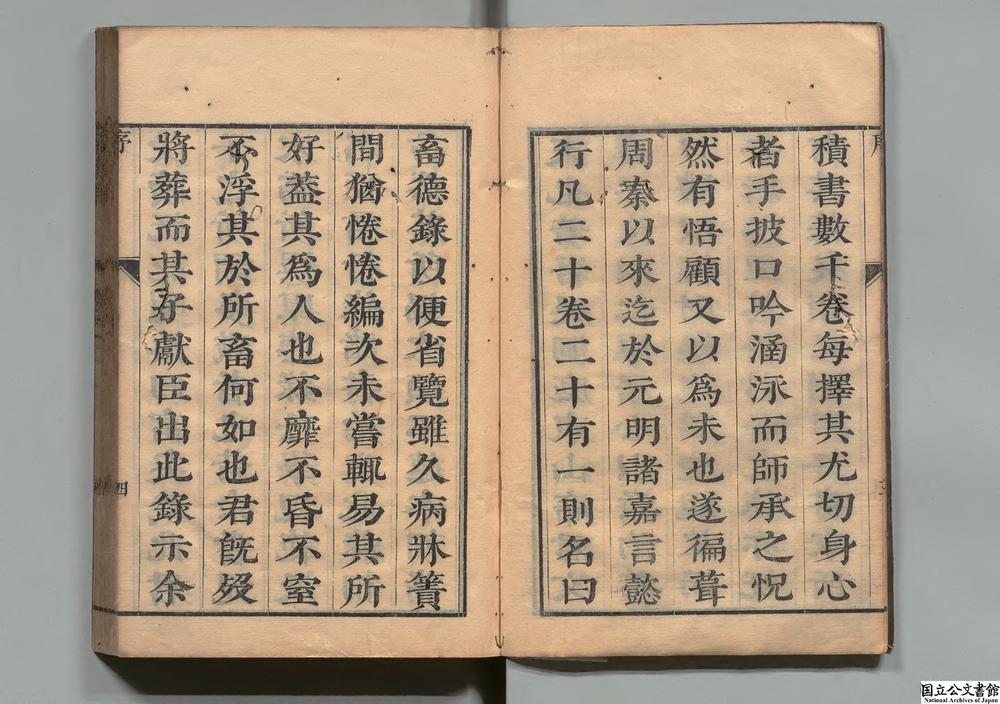 積書數千卷每擇其尤切身心
者手披口吟涵泳而師承之怳
然有悟顧又以爲未也遂徧葺
周秦以來迄於元明諸嘉言懿
行凡二十卷二十有一則名曰
畜德錄以便省覽雖久病牀簀
間猶惓惓編次未嘗輒易其所
好蓋其爲人也不靡不昏不窒
不浮其於所畜何如也君旣歿
將葬而其子獻臣出此錄示余
序
四
国立公文書館
National Archives of Japan